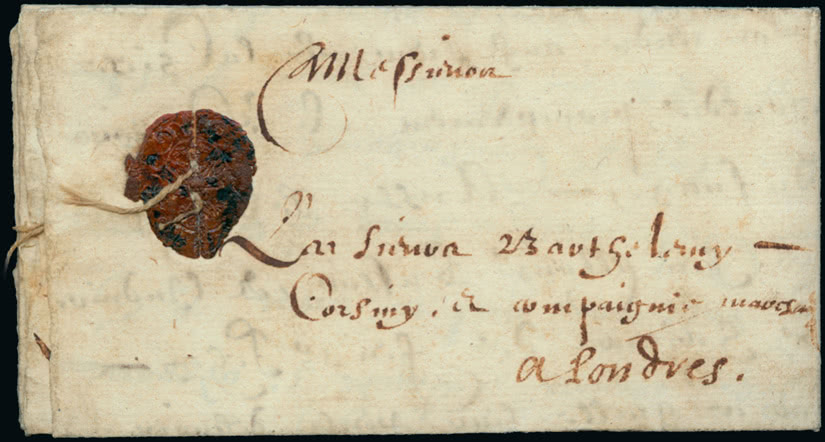 A Messieurs
Les sieurs Barthelemy
Corsiny, et compaignie march
a Londres.